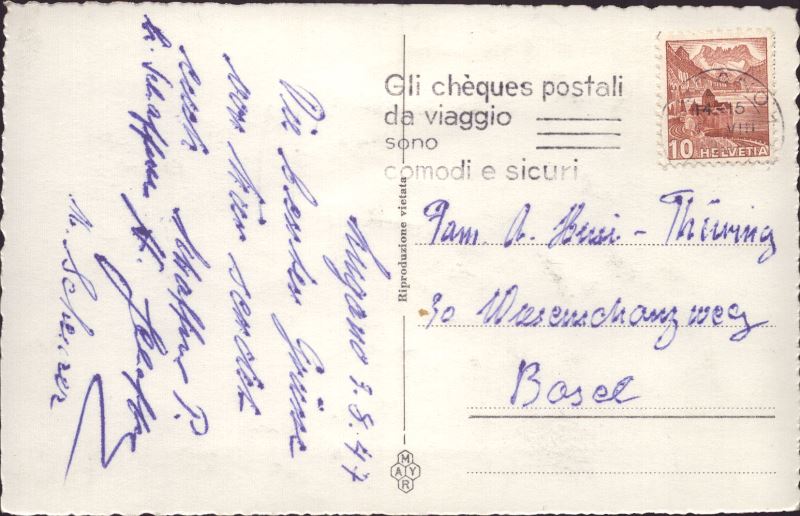 Lugano 3.8.47
Die besten Grüsse
von hier sendet
euch Schaffner P.
A. Schaffner
M. Scherrer
Gli chèques postali
da viaggio
sono
comodi e sicuri
14.-15
VIII
10 HELVETIA
Fam. A. Heusi - Thüring
30 Wiesenschanzweg
Basel
Riproduzione vietata
MAYR